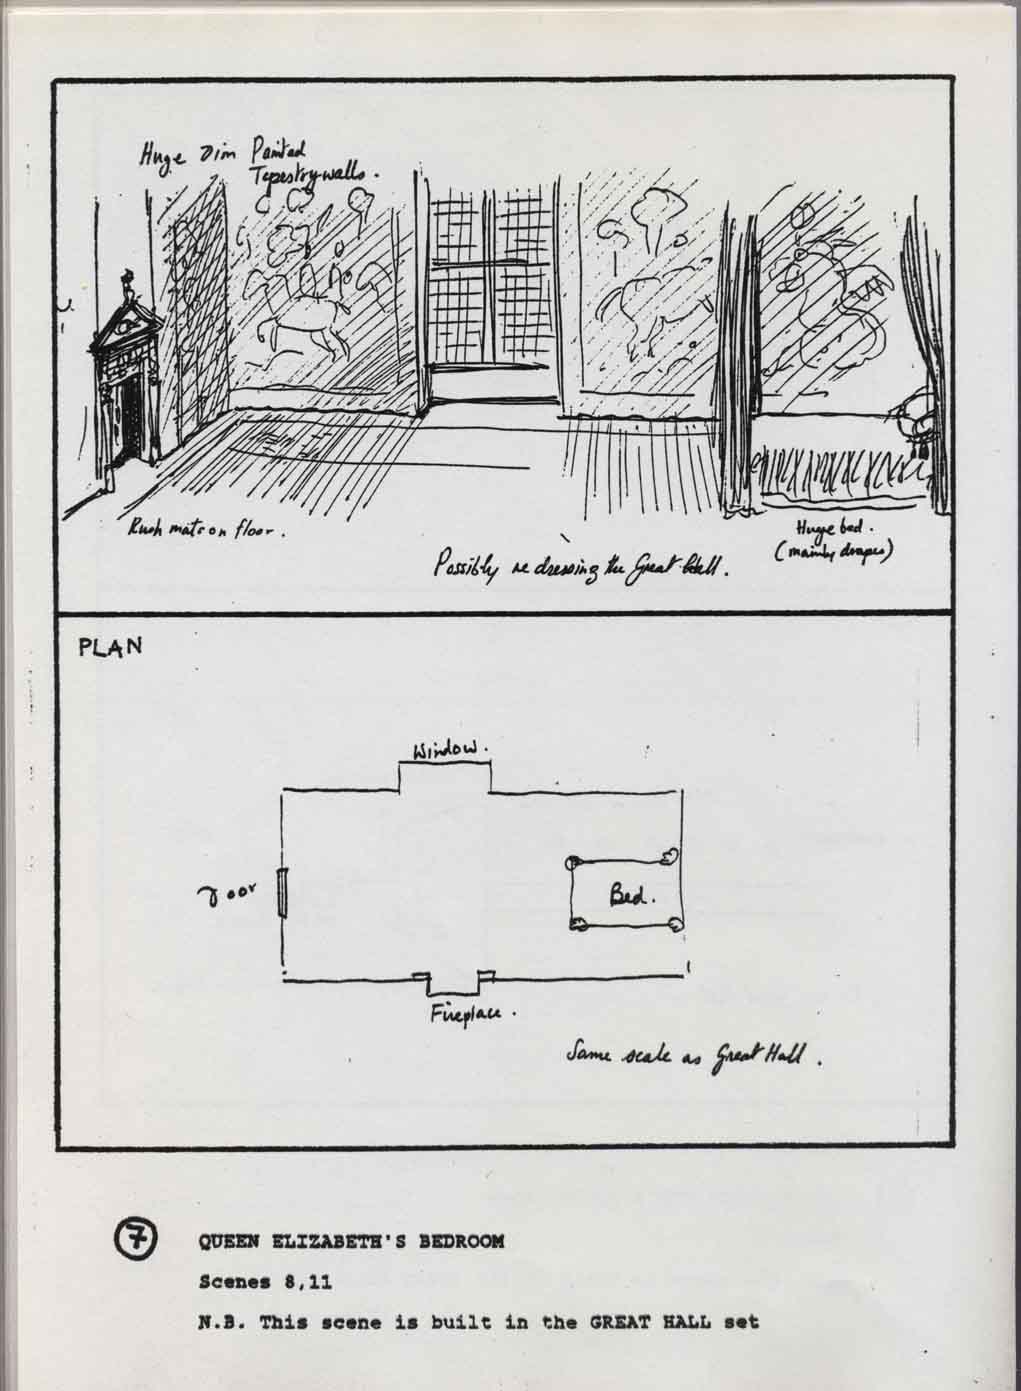 Huge Dim Painted
Tapestry walls.
Rush mats on floor.
Huge bed.
(mainly drapes)
Possibly re dressing the Great Hall.
PLAN
Window.
Door
Bed.
Fireplace.
Same scale as Great Hall.
7
QUEEN ELIZABETH'S BEDROOM
Scenes 8,11
N.B. This scene is built in the GREAT HALL set